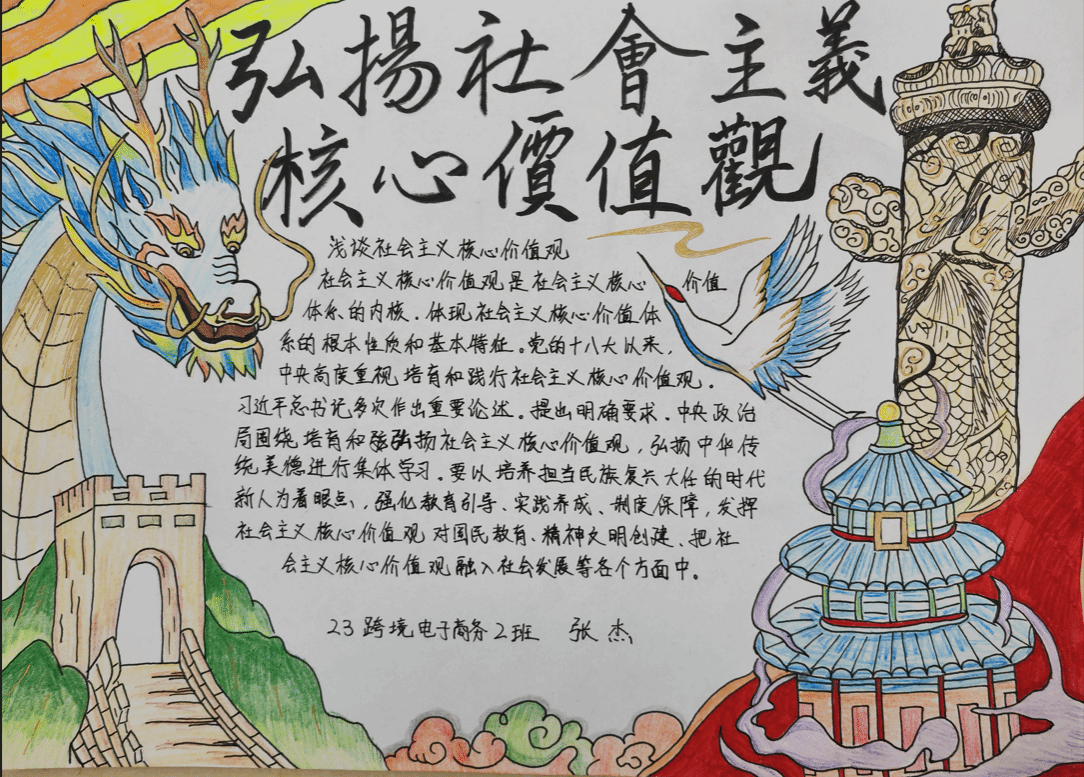 弘揚社會主義
核心價值觀
浅谈社会主义核心价值观
社会主义核心价值观是社会主义核心 价值
体系的内核。体现社会主义核心价值体
系的根本性质和基本特征。党的十八大以来，
中央高度重视培育和践行社会主义核心价值观。
习近平总书记多次作出重要论述。提出明确要求。中央政治
局围绕培育和弘扬社会主义核心价值观，弘扬中华传
统美德进行集体学习。要以培养担当民族复兴大任的时代
新人为着眼点，强化教育引导、实践养成、制度保障，发挥
社会主义核心价值观对国民教育、精神文明创建、把社
会主义核心价值观融入社会发展等各个方面中。
23跨境电子商务2班 张杰